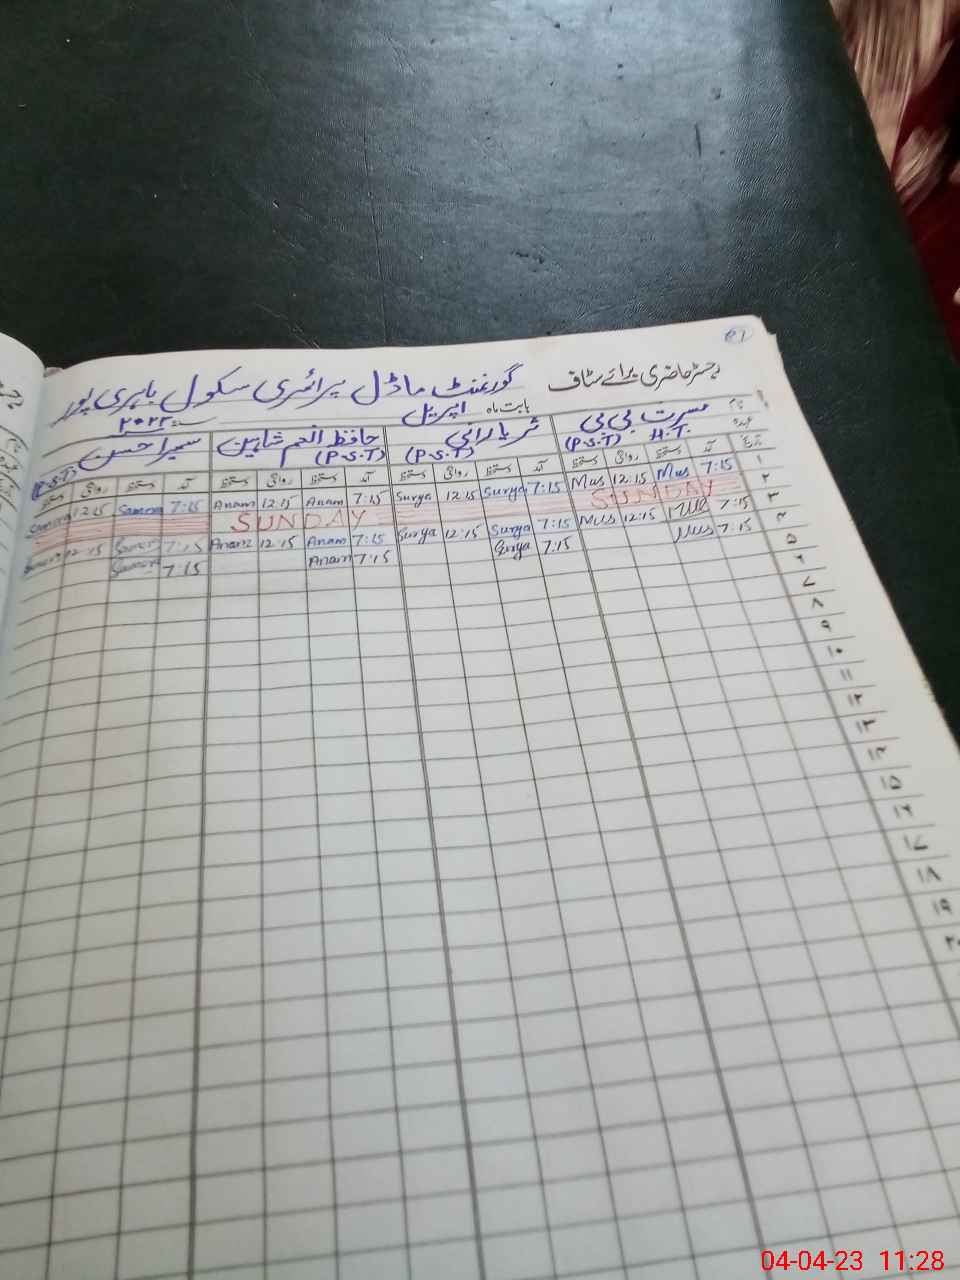 21
رجسٹر حاضری برائے سٹاف گورنمنٹ ماڈل پرائمری سکول باہری پور
بابت ماہ اپریل ۲۰۲۳
نام مسرت بی بی ثریا رانی حافظ انعم شاہین سمیرا حسن
عہدہ (P.S.T) H.T. (P.S.T) (P.S.T) (P.S.T)
تاریخ آمد دستخط روانگی دستخط آمد دستخط روانگی دستخط آمد دستخط روانگی دستخط آمد دستخط روانگی دستخط
۱ 7:15 Mus 12:15 Mus 7:15 Surya 12:15 Surya 7:15 Anam 12:15 Anam 7:15 Samera 12:15
۲ SUNDAY SUNDAY
۳ 7:15 Mus 12:15 Mus 7:15 Surya 12:15 Surya 7:15 Anam 12:15 Anam 7:15 12:15
۴ 7:15 Mus 7:15 Surya 7:15 Anam 7:15
۵
۶
۷
۸
۹
۱۰
۱۱
۱۲
۱۳
۱۴
۱۵
۱۶
۱۷
۱۸
۱۹
۲۰
04-04-23 11:28